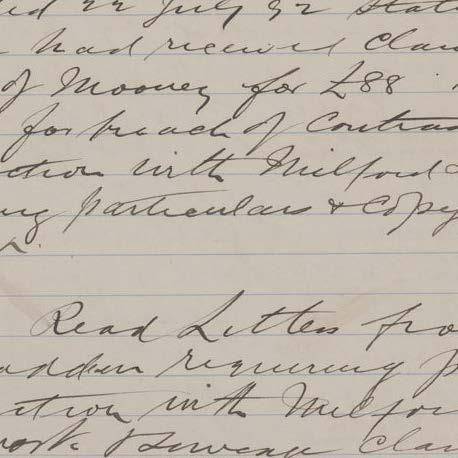 22 July 92 Stat
had received Clai
of Mooney for £88
for breach of Contrac
ction with Milford
ing particulars & Copy
Read Letters fro
adden requiring p
ction with Milfor
work Sewerage Clai